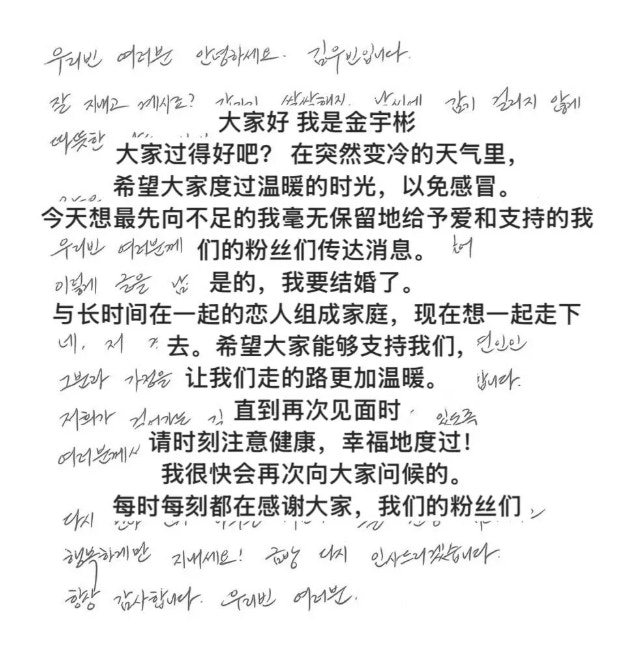 우리빈 여러분 안녕하세요. 김우빈입니다.
잘 지내고 계시죠? 갑자기 쌀쌀해진 날씨에 감기 걸리지 않게
大家好 我是金宇彬
따뜻한
大家过得好吧? 在突然变冷的天气里，
希望大家度过温暖的时光，以免感冒。
今天想最先向不足的我毫无保留地给予爱和支持的我
우리빈 여러분께 们的粉丝们传达消息。
이렇게 글을 是的，我要结婚了。
与长时间在一起的恋人组成家庭，现在想一起走下
네, 저 去。希望大家能够支持我们, 연인인
그분과 가정을 让我们走的路更加温暖。 합니다.
저희가 걸어가는 길 直到再次见面时 있도록
여러분께서 请时刻注意健康，幸福地度过!
我很快会再次向大家问候的。
每时每刻都在感谢大家，我们的粉丝们
다시
행복하게만 지내세요! 금방 다시 인사드리겠습니다.
항상 감사합니다. 우리빈 여러분.